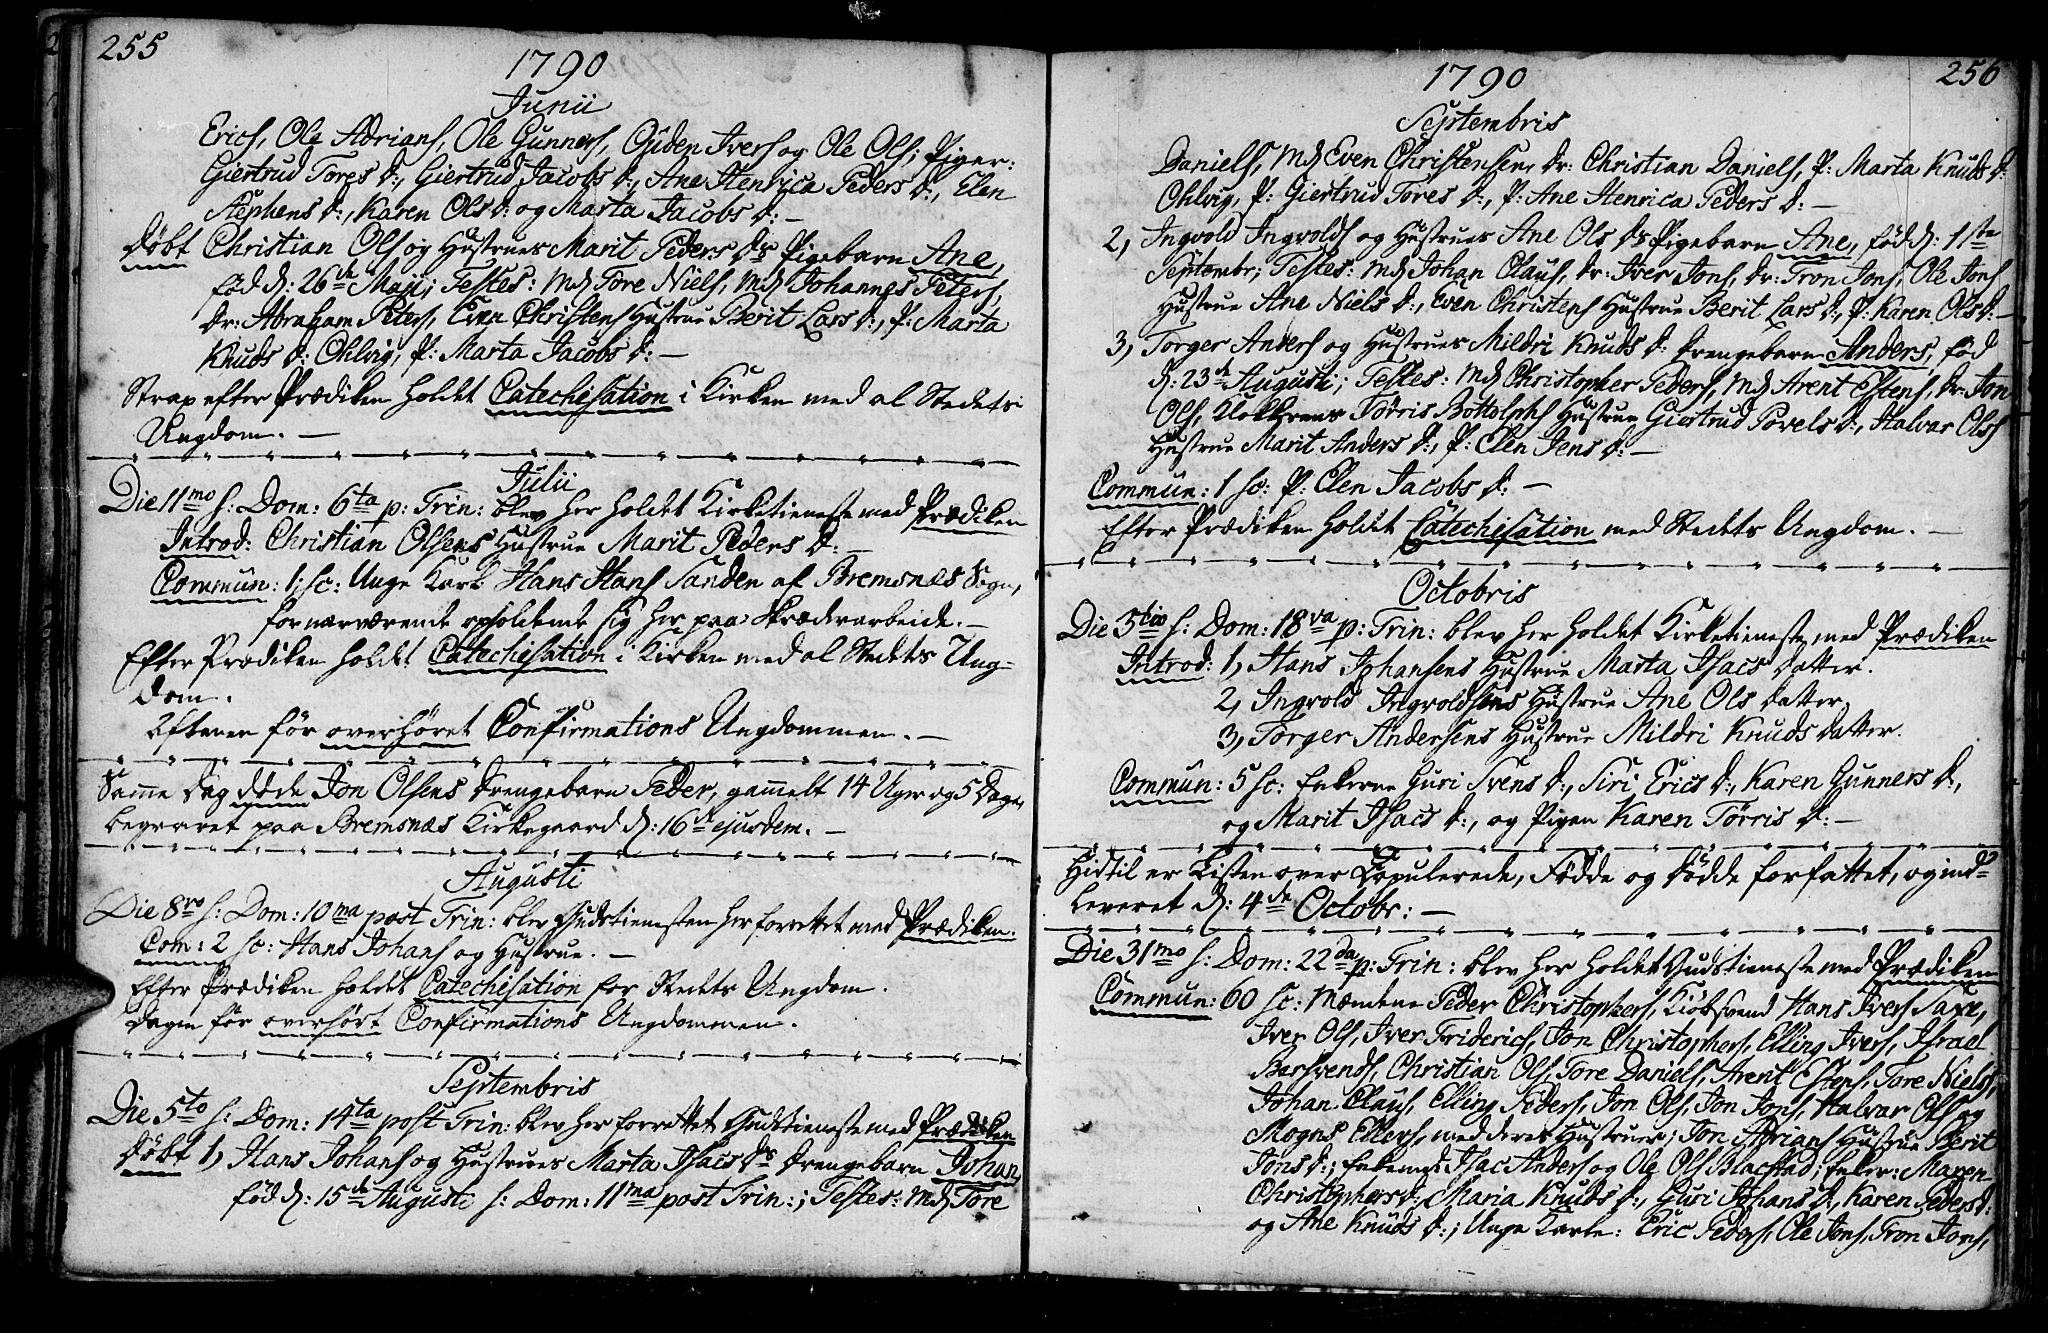 255
1790
Junii
Erichs, Ole Adrians, Ole Gunners, Ouden Ivers og Ole Ols; Piger:
Giertrud Tores d:, Giertrud Jacobs d:, Ane Henrica Peders d:, Elen
Stephens d:, Karen Ols d: og Marta Jacobs d: —
Døbt Christian Ols og Hustrues Marit Peders ds Pigebarn Ane,
fød d: 26de Maji; Testes: Md Tore Niels, Md Johannes Peters,
Dr: Abraham Peters, Even Christens Hustrue Berit Lars d:, P: Marta
Knuds d: Ohlvig, P: Marta Jacobs d: —
Strax efter Prædiken holdet Catechisation i Kirken med al Stedets
Ungdom. —
Julii
Die 11mo s: Dom: 6ta p: Trin: blev her holdet Kirketieneste med Prædiken
Introd: Christian Olsens Hustrue Marit Peders d: —
Commun: 1: sc: Unge Karl Hans Hans Sanden af Bremsnæs Sogn,
fornærværende opholdende sig her paa Skræderarbeide. —
Efter Prædiken holdet Catechisation i Kirken med al Stedets Ung=
dom.
Aftenen før overhøret Confirmations Ungdommen. —
Samme Dag døde Jon Olsens Drengebarn Peder, gammelt 14 Uger og 5 Dage,
begravet paa Bremsnæs Kirkegaard d: 16de ejusdem. —
Augusti
Die 8vo s: Dom: 10ma post Trin: blev Gudstienesten her forrettet med Prædiken.
Com: 2 sc: Hans Johans og Hustrue. —
Efter Prædiken holdet Catechisation for Stedets Ungdom.
Dagen før overhørt Confirmations Ungdommen.
Septembris
Die 5to s: Dom: 14ta post Trin: blev her forrettet Gudstieneste med Prædiken
Døbt 1, Hans Johans og Hustrues Marta Isacs ds Drengebarn Johan,
fød d: 15de Augusti s: Dom: 11ma post Trin:; Testes: Md Tore
256
1790
Septembris
Daniels, Md Even Christensen, Dr: Christian Daniels, P: Marta Knuds d:
Ohlvig, P: Giertrud Tores d:, P: Ane Henrica Peders d: —
2, Ingvold Ingvolds og Hustrues Ane Ols ds Pigebarn Ane, fød d: 1ste
Septembr; Testes: Md Johan Claus, Dr: Iver Jons, Dr: Tron Jons, Ole Jons
Hustrue Ane Niels d:, Even Christens Hustrue Berit Lars d:, P: Karen Ols d: —
3, Torger Anders og Hustrues Mildri Knuds d: Drengebarn Anders, fød
d: 23de Augusti; Testes: Md Christopher Peders, Md Arent Estens, Dr: Jon
Ols, Klokkerens Tørris Bottolphs Hustrue Giertrud Povels d:, Halvar Ols
Hustrue Marit Anders d:, P: Elen Jens d: —
Commun: 1 sc: P: Elen Jacobs d: —
Efter Prædiken holdet Catechisation med Stedets Ungdom. —
Octobris
Die 3tio s: Dom: 18va p: Trin: blev her holdet Kirketieneste med Prædiken
Introd: 1, Hans Johansens Hustrue Marta Isacs Datter.
2, Ingvold Ingvoldsens Hustrue Ane Ols Datter.
3, Torger Andersens Hustrue Mildri Knuds Datter.
Commun: 5 sc: Enkerne Guri Svens d:, Siri Erics d:, Karen Gunners d:,
og Marit Isacs d:, og Pigen Karen Tørris d: —
Hidtil er Listen over Copulerede, Fødde og Dødde forfattet, og ind=
leveret d: 4de Octobr: —
Die 31mo s: Dom: 22da p: Trin: blev her holdet Gudstieneste med Prædiken
Commun: 60 sc: Mændene Peder Christophers, Kiøbsvend Hans Ivers Saxe,
Iver Ols, Iver Friderichs, Jon Christophers, Elling Ivers, Israel
Barsvends, Christian Ols, Tore Daniels, Arent Estens, Tore Niels,
Johan Claus, Elling Peders, Jon Ols, Jon Jons, Halvar Ols og
Mogns Ellers, med deres Hustruer; Jon Adrians Hustrue Berit
Jons d:; Enkemd Isac Anders og Ole Ols Blacstad; Enker: Maren
Christophers d:, Maria Knuds d:, Guri Johans d:, Karen Peders d:
og Ane Knuds d:; Unge Karle: Eric Peders, Ole Jons, Tron Jons,